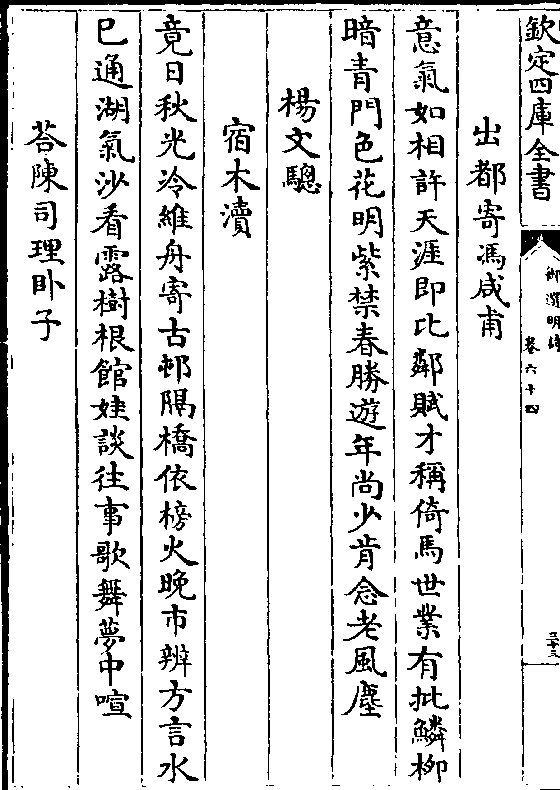 欽定四庫全書
御選明詩
卷六十四
三十三
出都寄馮咸甫
意氣如相許天涯即比鄰賦才稱倚馬世業有批鱗柳
暗青門色花明紫禁春勝遊年尚少肯念老風塵
楊文驄
宿木瀆
竟日秋光冷維舟寄古邨隔橋依榜火晚市辨方言水
已通湖氣沙看露樹根館娃談往事歌舞夢中喧
荅陳司理卧子